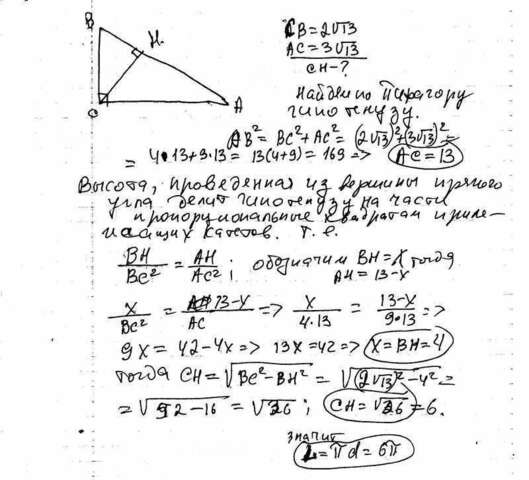 В
H.
C
A
CB = 2√13
AC = 3√13
CH - ?
Найдем по Пифагору
гипотенузу.
AB² = BC² + AC² = (2√13)² + (3√13)² =
= 4·13 + 9·13 = 13(4+9) = 169 => AC = 13
Высота, проведенная из вершины прямого
угла делит гипотенузу на части
пропорциональные квадратам приле-
жащих катетов. т.е.
BH/BC² = AH/AC² ; обозначим BH = X тогда
AH = 13 - X
X/BC² = 13-X/AC => X/4·13 = 13-X/9·13 =>
9X = 42 - 4X => 13X = 42 => X = BH = 4
тогда CH = √BC² - BH² = √(2√13)² - 4² =
= √52 - 16 = √36 ; CH = √36 = 6.
значит
L = πd = 6π